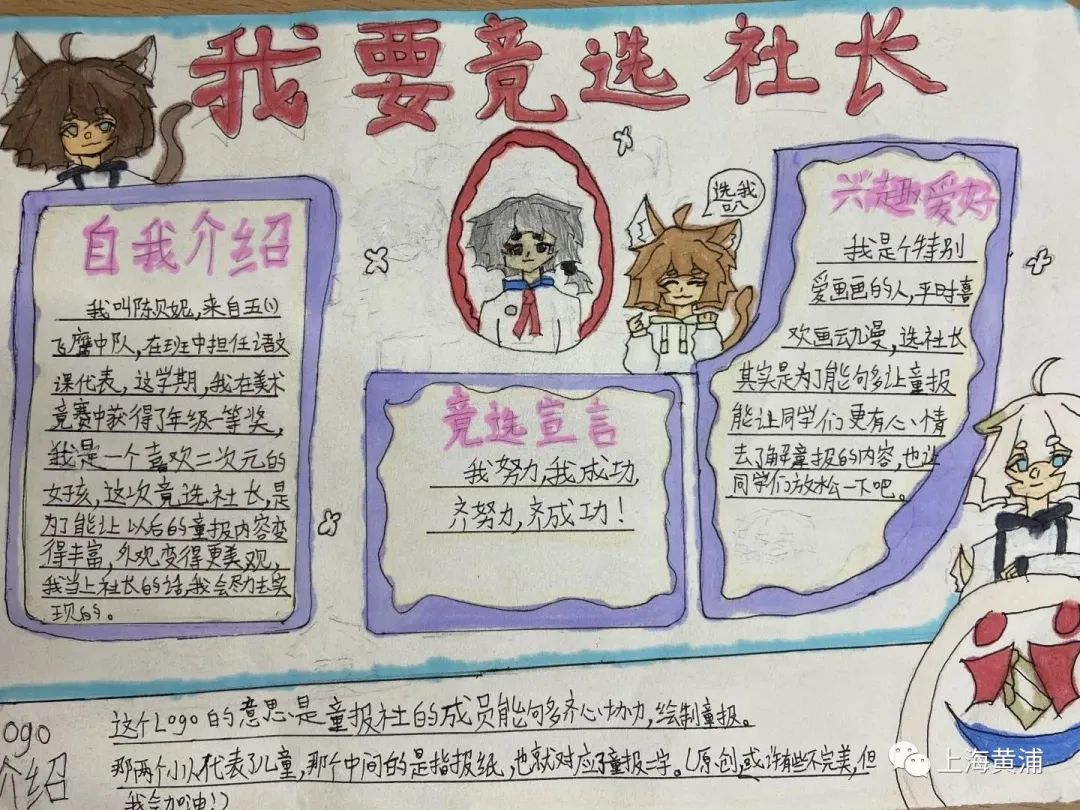 我要竞选社长
选我
自我介绍
我叫陈贝妮,来自五(1)
飞鹰中队,在班中担任语文
课代表,这学期,我在美术
竞赛中获得了年级一等奖,
我是一个喜欢二次元的
女孩,这次竞选社长,是
为了能让以后的童报内容变
得丰富,外观变得更美观,
我当上社长的话,我会尽力去实
现的。
竞选宣言
我努力,我成功,
齐努力,齐成功!
兴趣爱好
我是个特别
爱画画的人,平时喜
欢画动漫,选社长
其实是为了能够多让童报
能让同学们更有心情
去了解童报的内容,也让
同学们放松一下吧。
logo
介绍
这个Logo的意思是童报社的成员能够齐心协力,绘制童报。
那两个小人代表了儿童,那个中间的是指报纸,也就对应了童报二字。(原创,或许有些不完美,但
我会加油!)
上海黄浦